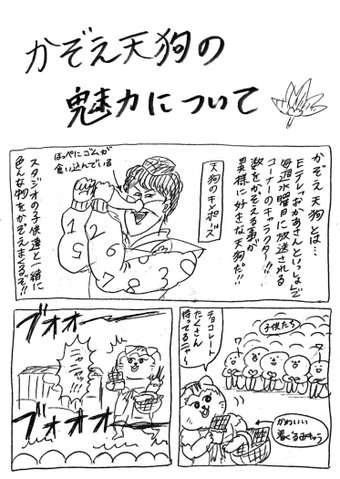 かぞえ天狗の
魅力について
かぞえ天狗とは…
Eテレ「おかあさんといっしょ」で
毎週水曜日に放送される
コーナーのキャラクター!!
数をかぞえる事が
異様に好きな天狗だ!!
天狗のキメポーズ
ほっぺにゴムが
食い込んでいる
スタジオの子供達と一緒に
色んな物をかぞえまくるぞ!!
子供たち
チョコレート
たくさん
持ってるニャ〜
かわいい
着ぐるみちゃん
ブオオー
ニャー!!
ブオオオ